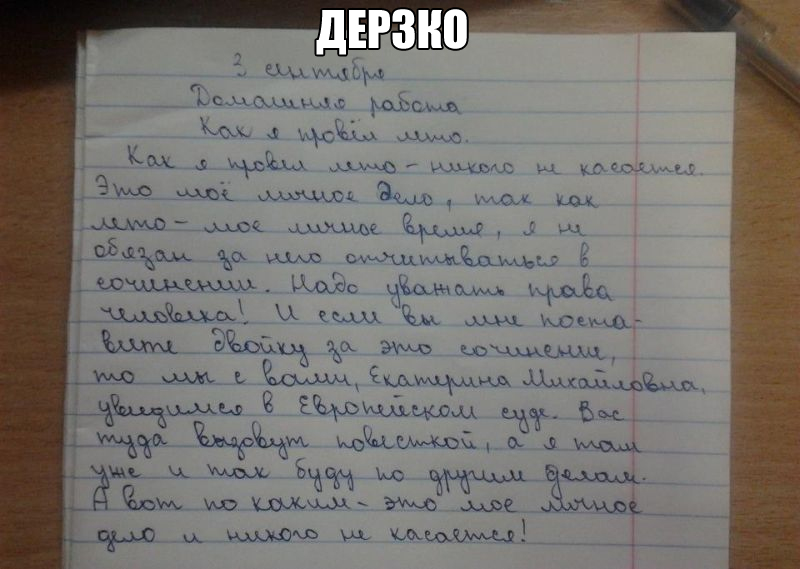 ДЕРЗКО
3 сентября
Домашняя работа
Как я провёл лето.
Как я провел лето - никого не касается.
Это моё личное дело, так как
лето - мое личное время, я не
обязан за него отчитываться в
сочинении. Надо уважать права
человека! И если вы мне поста-
вите двойку за это сочинение,
то мы с вами, Екатерина Михайловна,
увидимся в Европейском суде. Вас
туда вызовут повесткой, а я там
уже и так буду по другим делам.
А вот по каким - это мое личное
дело и никого не касается!